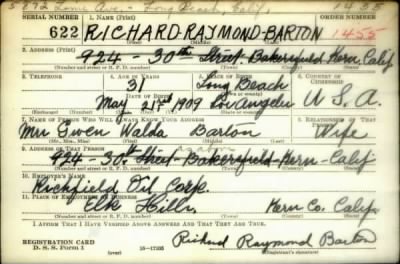 Ave. - Long Beach, Calif. 1435
SERIAL NUMBER 1. NAME (Print)
622 RICHARD-RAYMOND-BARTON 1455
(First) (Middle) (Last)
2. ADDRESS (Print)
924 - 30th Street. Bakersfield Kern. Calif
(Number and street or R. F. D. number) (Town) (County) (State)
3. TELEPHONE 4. AGE IN YEARS 5. PLACE OF BIRTH 6. COUNTRY OF CITIZENSHIP
31 Long Beach
DATE OF BIRTH
May 21st 1909 Los Angeles U.S.A.
(Exchange) (Number) (Mo.) (Day) (Yr.) (State or country)
7. NAME OF PERSON WHO WILL ALWAYS KNOW YOUR ADDRESS 8. RELATIONSHIP OF THAT PERSON
Mrs Gwen Walda Barton Wife
(Mr., Mrs., Miss) (First) (Middle) (Last)
9. ADDRESS OF THAT PERSON
924 - 30th Street - Bakersfield - Kern - Calif
(Number and street or R. F. D. number) (Town) (County) (State)
10. EMPLOYER'S NAME
Richfield Oil Corp.
11. PLACE OF EMPLOYMENT OR BUSINESS
Elk Hills Kern Co. Calif.
(Number and street or R. F. D. number) (Town) (County) (State)
I AFFIRM THAT I HAVE VERIFIED ABOVE ANSWERS AND THAT THEY ARE TRUE.
REGISTRATION CARD
D. S. S. Form 1 (over) 16-17105 Richard Raymond Barton